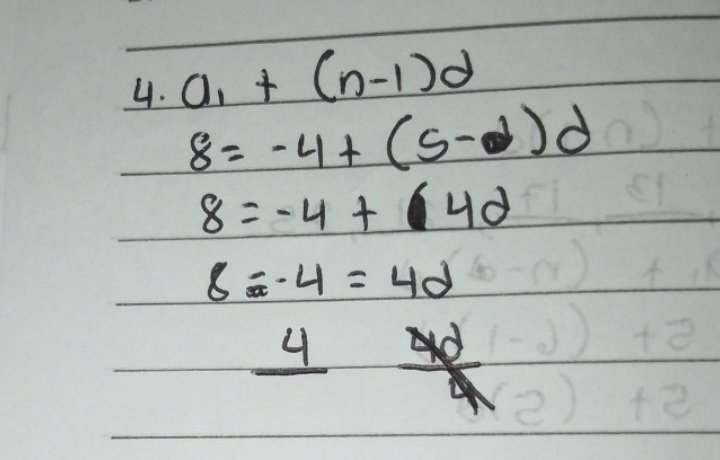 4. a₁ + (n-1)d
8 = -4 + (5-)d
8 = -4 + 4d
8 - 4 = 4d
4 4d
4